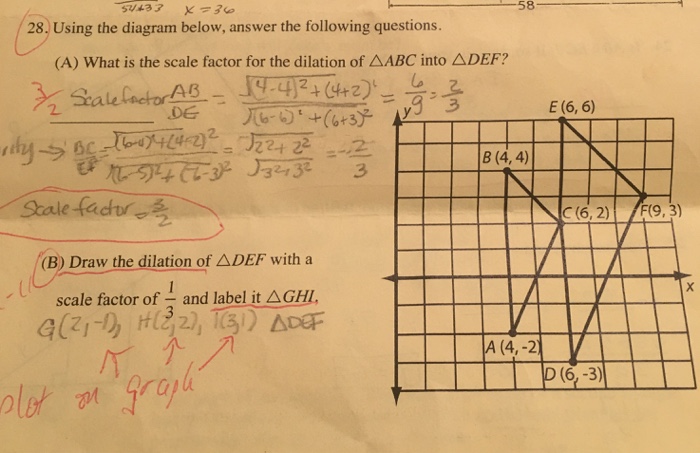 x = 36
58
28. Using the diagram below, answer the following questions.
(A) What is the scale factor for the dilation of △ABC into △DEF?
3/2 Scale factor AB/DE = √(4-4)²+(4+2)² / √(6-6)²+(6+3)² = 6/9 = 2/3
BC/EF = √(6-4)²+(4-2)² = √2²+2² / √3²+3² = 2/3
Scale factor = 3/2
(B) Draw the dilation of △DEF with a
scale factor of 1/3 and label it △GHI.
G(2,-1), H(2,2), I(3,1) △DEF
plot on graph
y
E (6, 6)
B (4, 4)
C (6, 2)
F(9, 3)
x
A (4, -2)
D (6, -3)